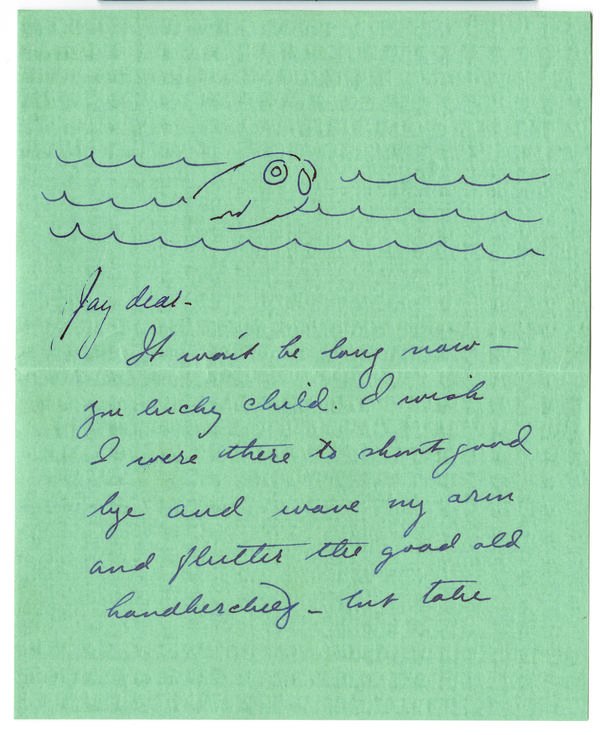 Jay dear-
It won't be long now —
you lucky child. I wish
I were there to shout good
bye and wave my arm
and flutter the good old
handkerchief - but take